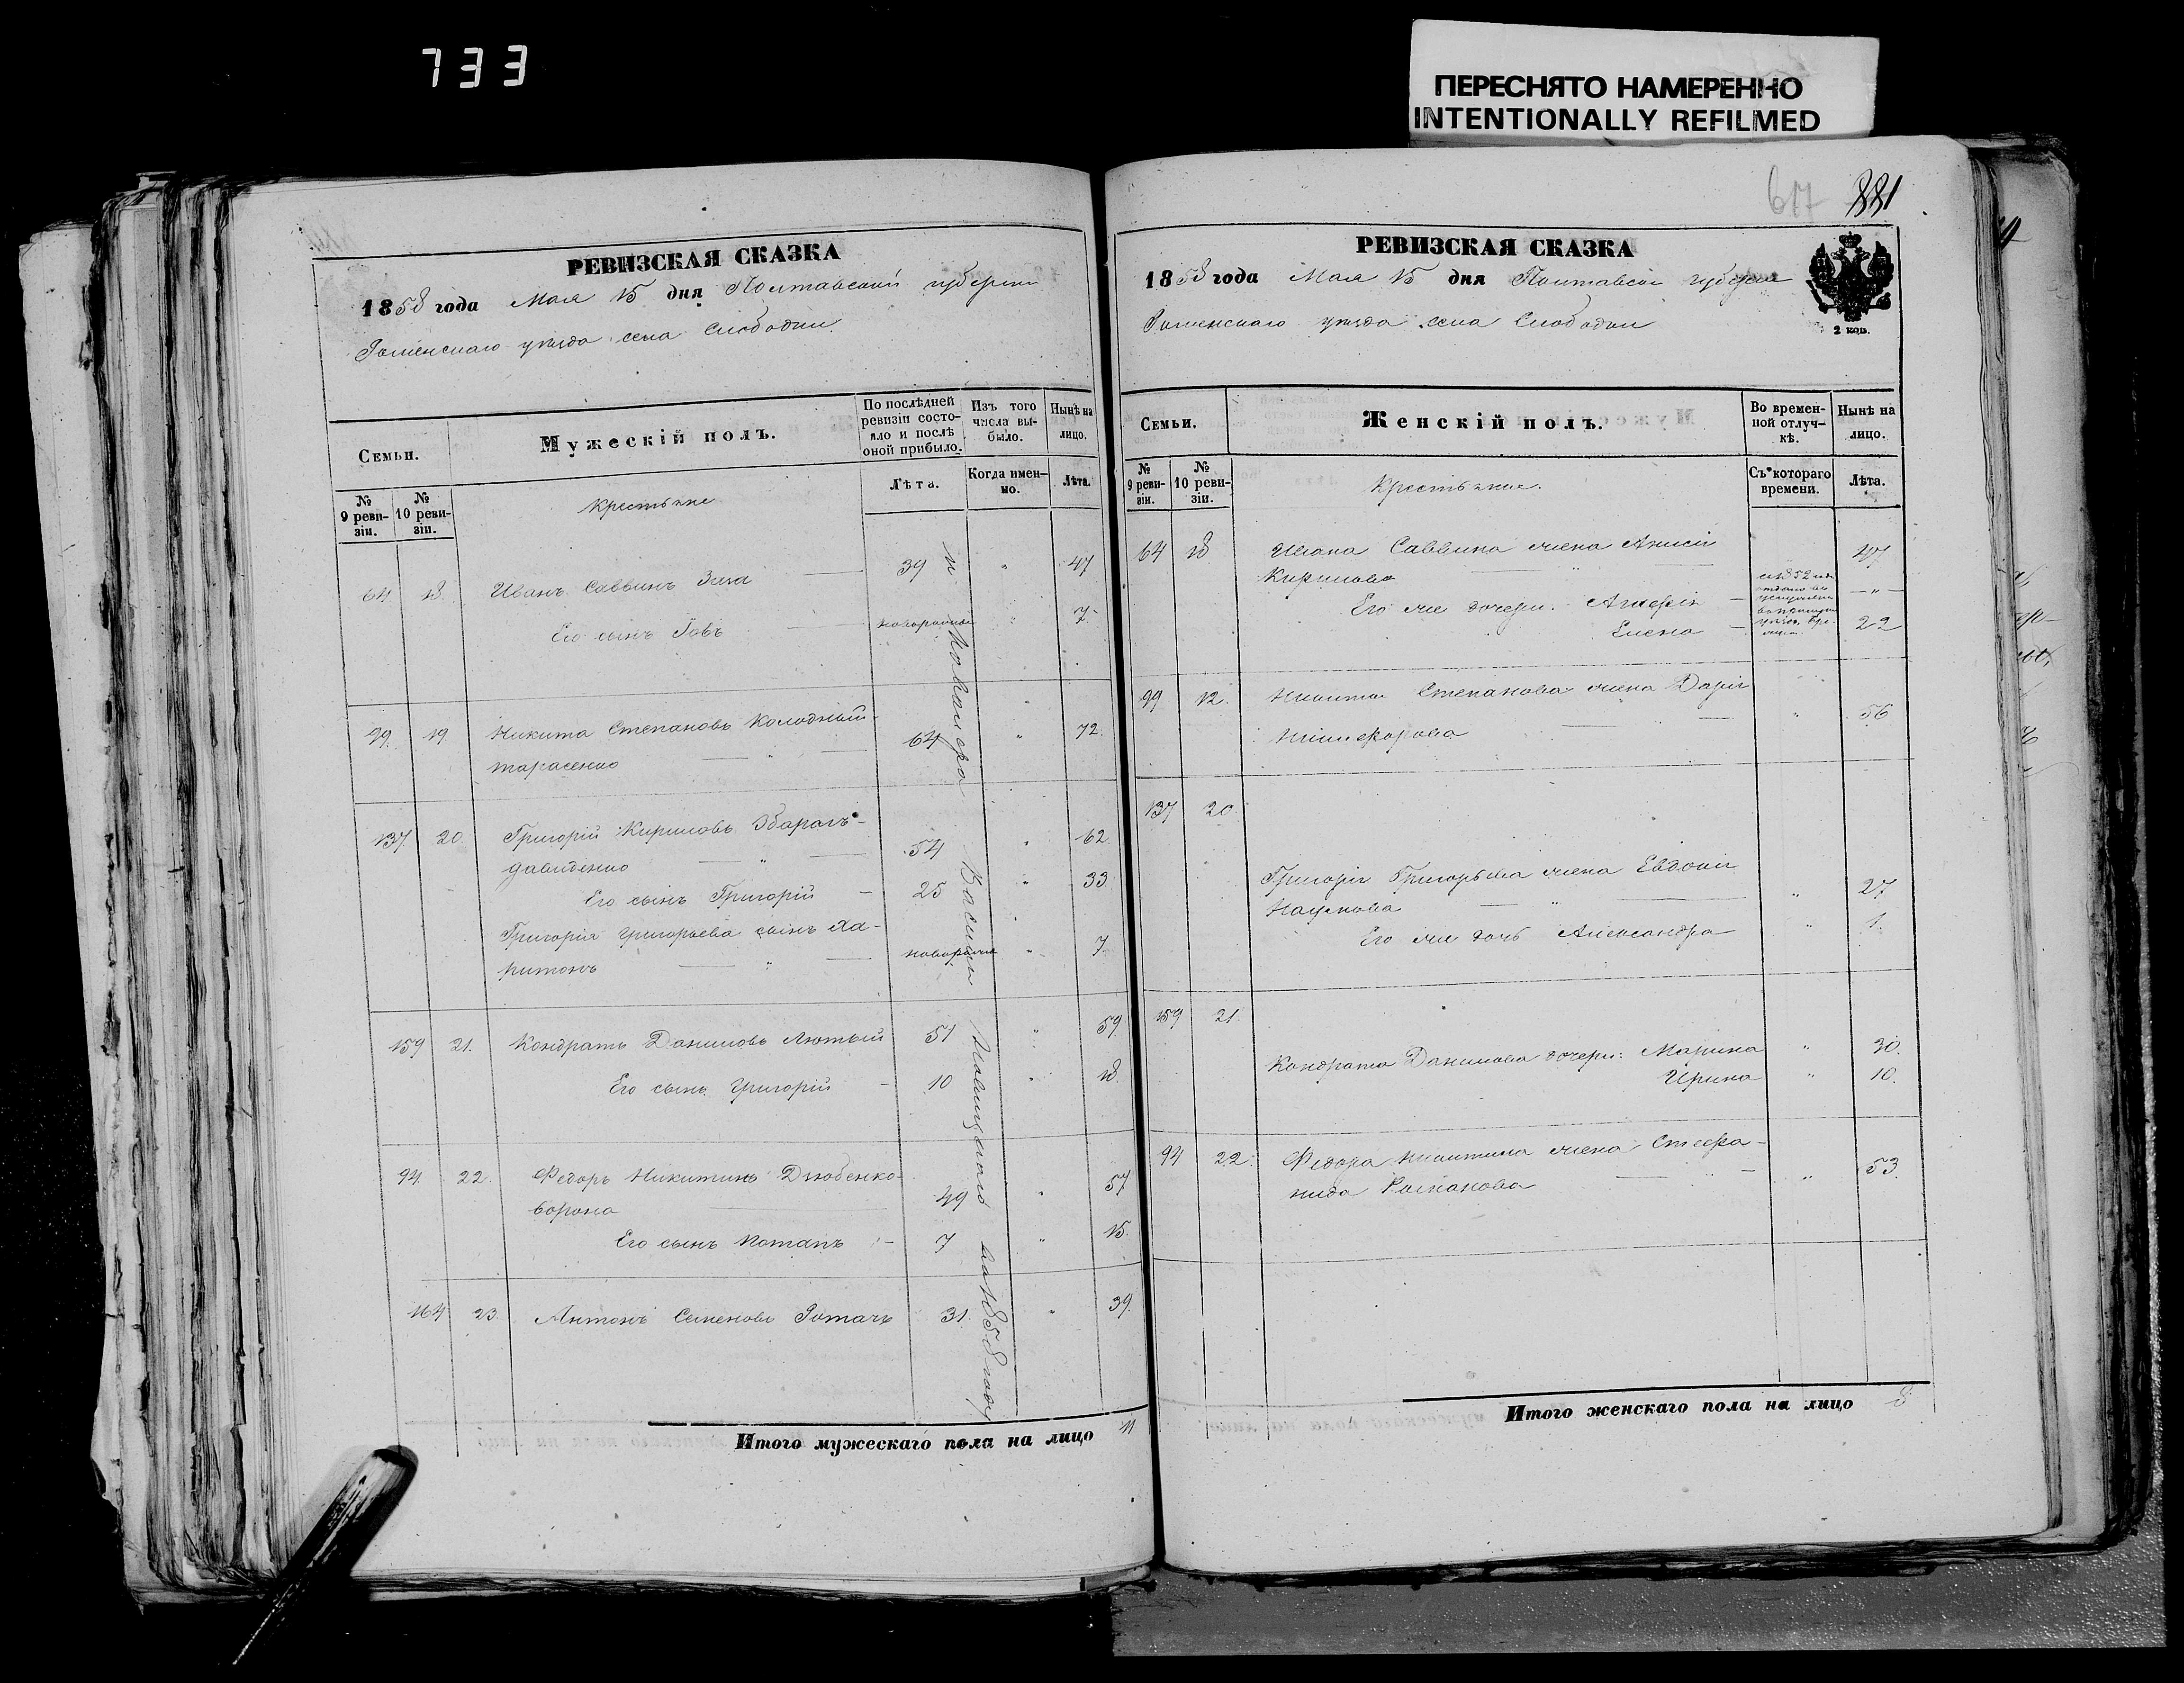 733
ПЕРЕСНЯТО НАМЕРЕННО
INTENTIONALLY REFILMED
РЕВИЗСКАЯ СКАЗКА
1858 года Мая 15 дня Полтавской губернии
Роменскаго уезда села Слободки
Семьи.
Мужескій полъ.
По послѣдней ревизіи состояло и послѣ оной прибыло.
Изъ того числа выбыло.
Нынѣ на лицо.
№ 9 ревизіи.
№ 10 ревизіи.
Крестьяне
Лѣта.
Когда именно.
Лѣта.
64 18. Иванъ Саввинъ Зима 39 " 47
Его сынъ Іовъ новорожден " 7
99. 19 Никита Степановъ Колодный
тарасенко 64 " 72.
137 20. Григорій Кириловъ Збарагъ-
давиденко — " — 54 " 62
Его сынъ Григорій — 25 " 33
Григорія Григорьева сынъ Ха-
ритонъ — " — новорожд " 7.
159 21. Кондратъ Даниловъ Лютый 51 " 59
Его сынъ Григорій — 10 " 18.
94 22. Федоръ Никитинъ Дзюбенко-
ворона 49 " 57
Его сынъ Потапъ — 7 " 15.
164 23 Антонъ Семеновъ Ротачь 31. " 39.
Василія
1858 году
Итого мужескаго пола на лицо 11
617 881
РЕВИЗСКАЯ СКАЗКА
1858 года Мая 15 дня Полтавской губернии
Роменскаго уезда села Слободки
2 коп.
Семьи.
Женскій полъ.
Во временной отлучкѣ.
Нынѣ на лицо.
№ 9 ревизіи.
№ 10 ревизіи.
Крестьяне.
Съ котораго времени.
Лѣта.
64 18 Ивана Саввина жена Анисія
Кирилова 47
Его же дочери: Агафія — — " —
Елена — 22
99 12. Никиты Степанова жена Дарія
Никифорова " 56
137 20.
Григорія Григорьева жена Евдокія
Наумова — " — " 27
Его же дочь Александра " 1.
159 21.
Кондрата Данилова дочери: Марина " 30.
Ирина " 10.
94 22. Федора Никитина жена Стефа-
нида Романова " 53.
Итого женскаго пола на лицо 8